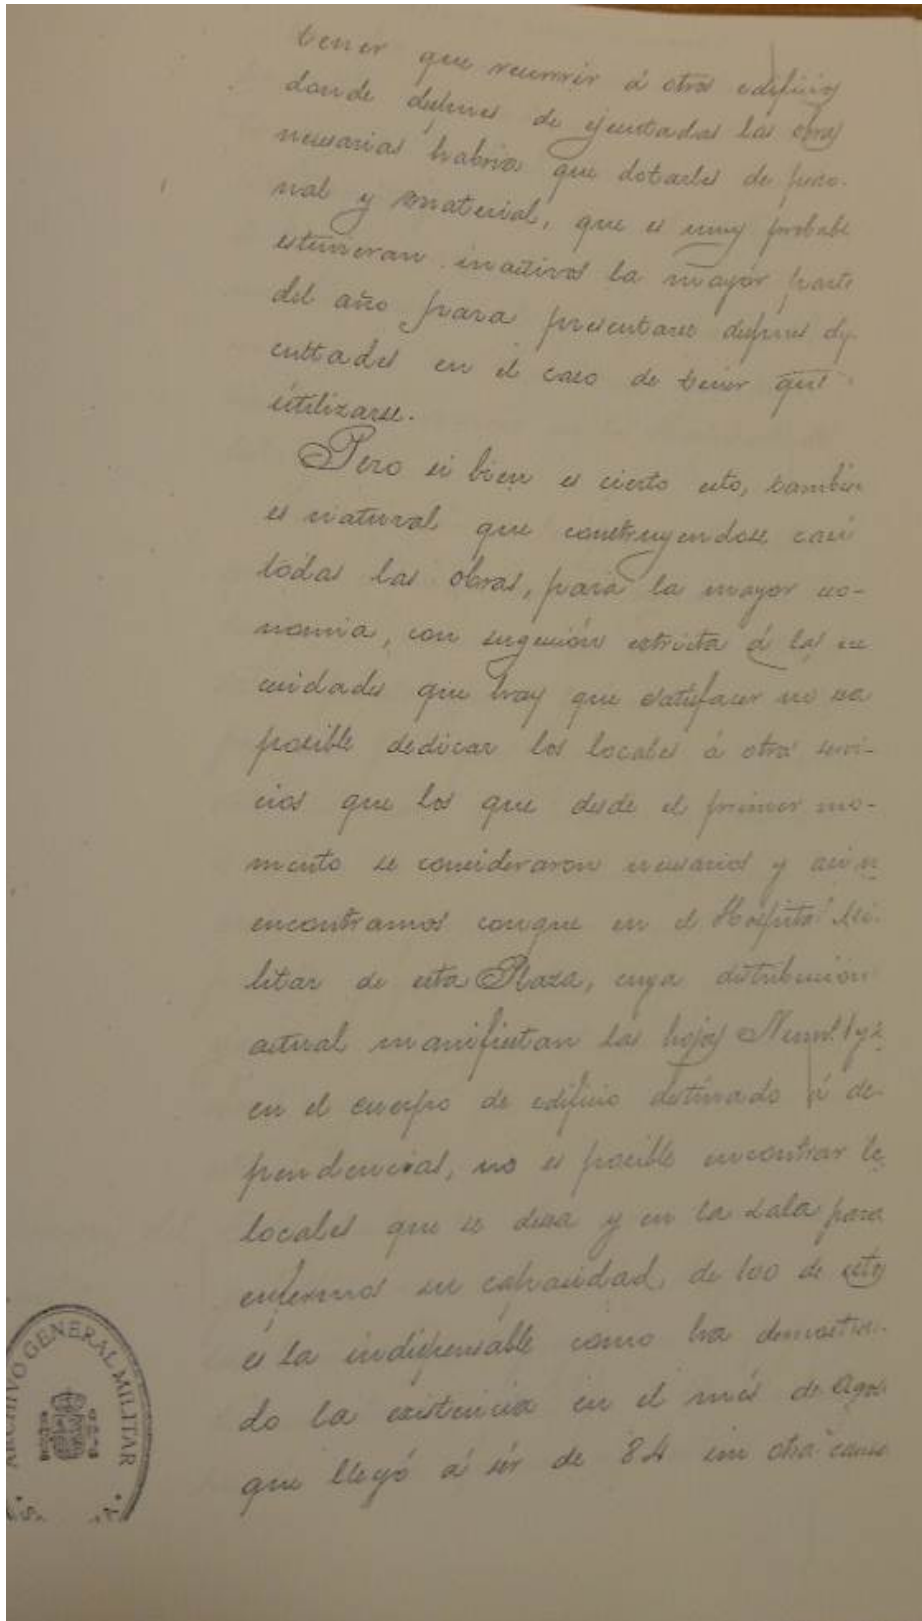 tener que recurrir á otros edificios
donde despues de ejecutadas las obras
necesarias habria que dotarles de perso-
nal y material, que es muy probable
estuvieran inactivos la mayor parte
del año para presentarse despues difi-
cultades en el caso de tener que
utilizarse.
Pero si bien es cierto esto, tambien
es natural que construyendose casi
todas las obras, para la mayor eco-
nomia, con sugeción estricta á las ne
cesidades que hay que satisfacer no sea
posible dedicar los locales á otros servi-
cios que los que desde el primer mo-
mento se consideraron necesarios y asi n
encontramos conque en el Hospital Mi-
litar de esta Plaza, cuya distribucion
actual manifiestan las hojas Num. 1 y 2
en el cuerpo de edificio destinado á de-
pendencias, no es posible encontrar los
locales que se desea y en la sala para
enfermos su capacidad de 100 de estos
es la indispensable como ha demostra-
do la existencia en el més de Agos
que llegó á sér de 84 sin otra causa
ARCHIVO GENERAL MILITAR